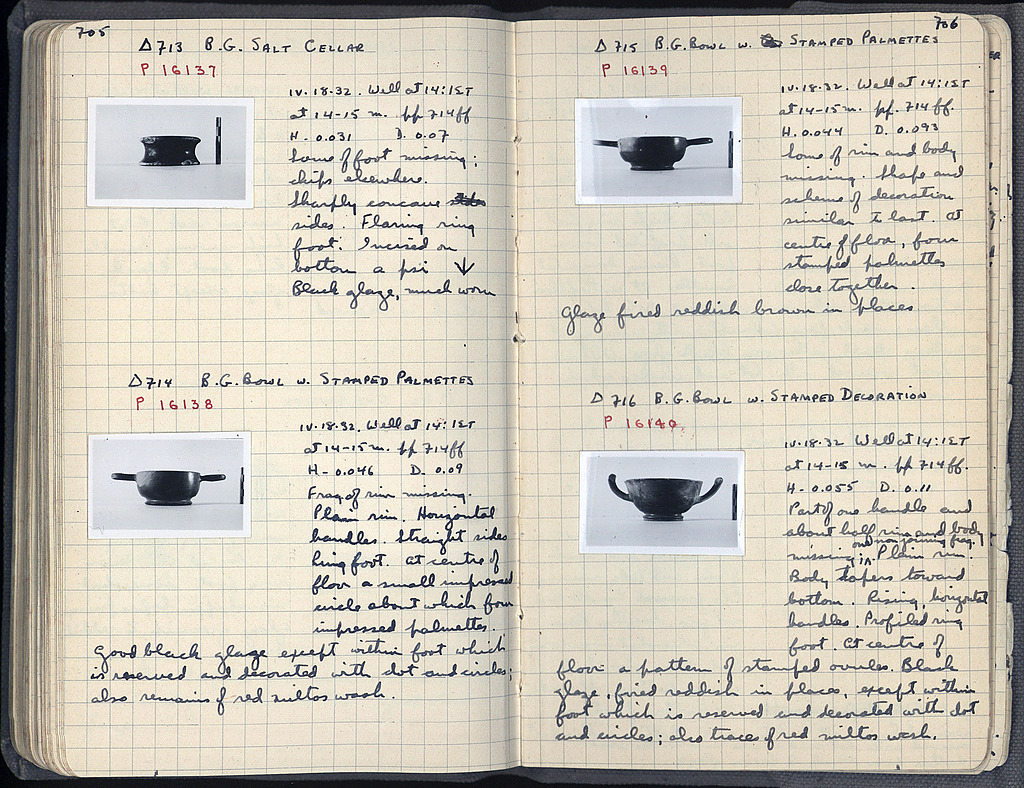 705
Δ713 B.G. SALT CELLAR
P 16137
IV.18.32. Well at 14:1ST
at 14-15 m. pp 714ff
H. 0.031 D. 0.07
Some of foot missing;
chips elsewhere.
Sharply concave
sides. Flaring ring
foot. Incised on
bottom a psi ↓
Black glaze, much worn
Δ714 B.G. BOWL W. STAMPED PALMETTES
P 16138
IV.18.32. Well at 14:1ST
at 14-15 m. pp 714ff
H-0.046 D. 0.09
Frag of rim missing.
Plain rim. Horizontal
handles. Straight sides
Ring foot. At centre of
floor a small impressed
circle about which four
impressed palmettes.
Good black glaze except within foot which
is reserved and decorated with dot and circles;
also remains of red miltos wash.
706
Δ715 B.G. BOWL W. STAMPED PALMETTES
P 16139
IV.18.32. Well at 14:1ST
at 14-15 m. pp. 714 ff.
H. 0.044 D. 0.093
Some of rim and body
missing. Shape and
scheme of decoration
similar to last. At
centre of floor, four
stamped palmettes
close together.
Glaze fired reddish brown in places
Δ716 B.G. BOWL W. STAMPED DECORATION
P 16140
IV.18.32 Well at 14:1ST
at 14-15 m. pp 714ff.
H-0.055 D. 0.11
Part of one handle and
about half rim and body
one non joining frag.
missing in. Plain rim.
Body tapers toward
bottom. Rising, horizontal
handles. Profiled ring
foot. At centre of
floor a pattern of stamped ovules. Black
glaze, fired reddish in places, except within
foot which is reserved and decorated with dot
and circles; also traces of red miltos wash.